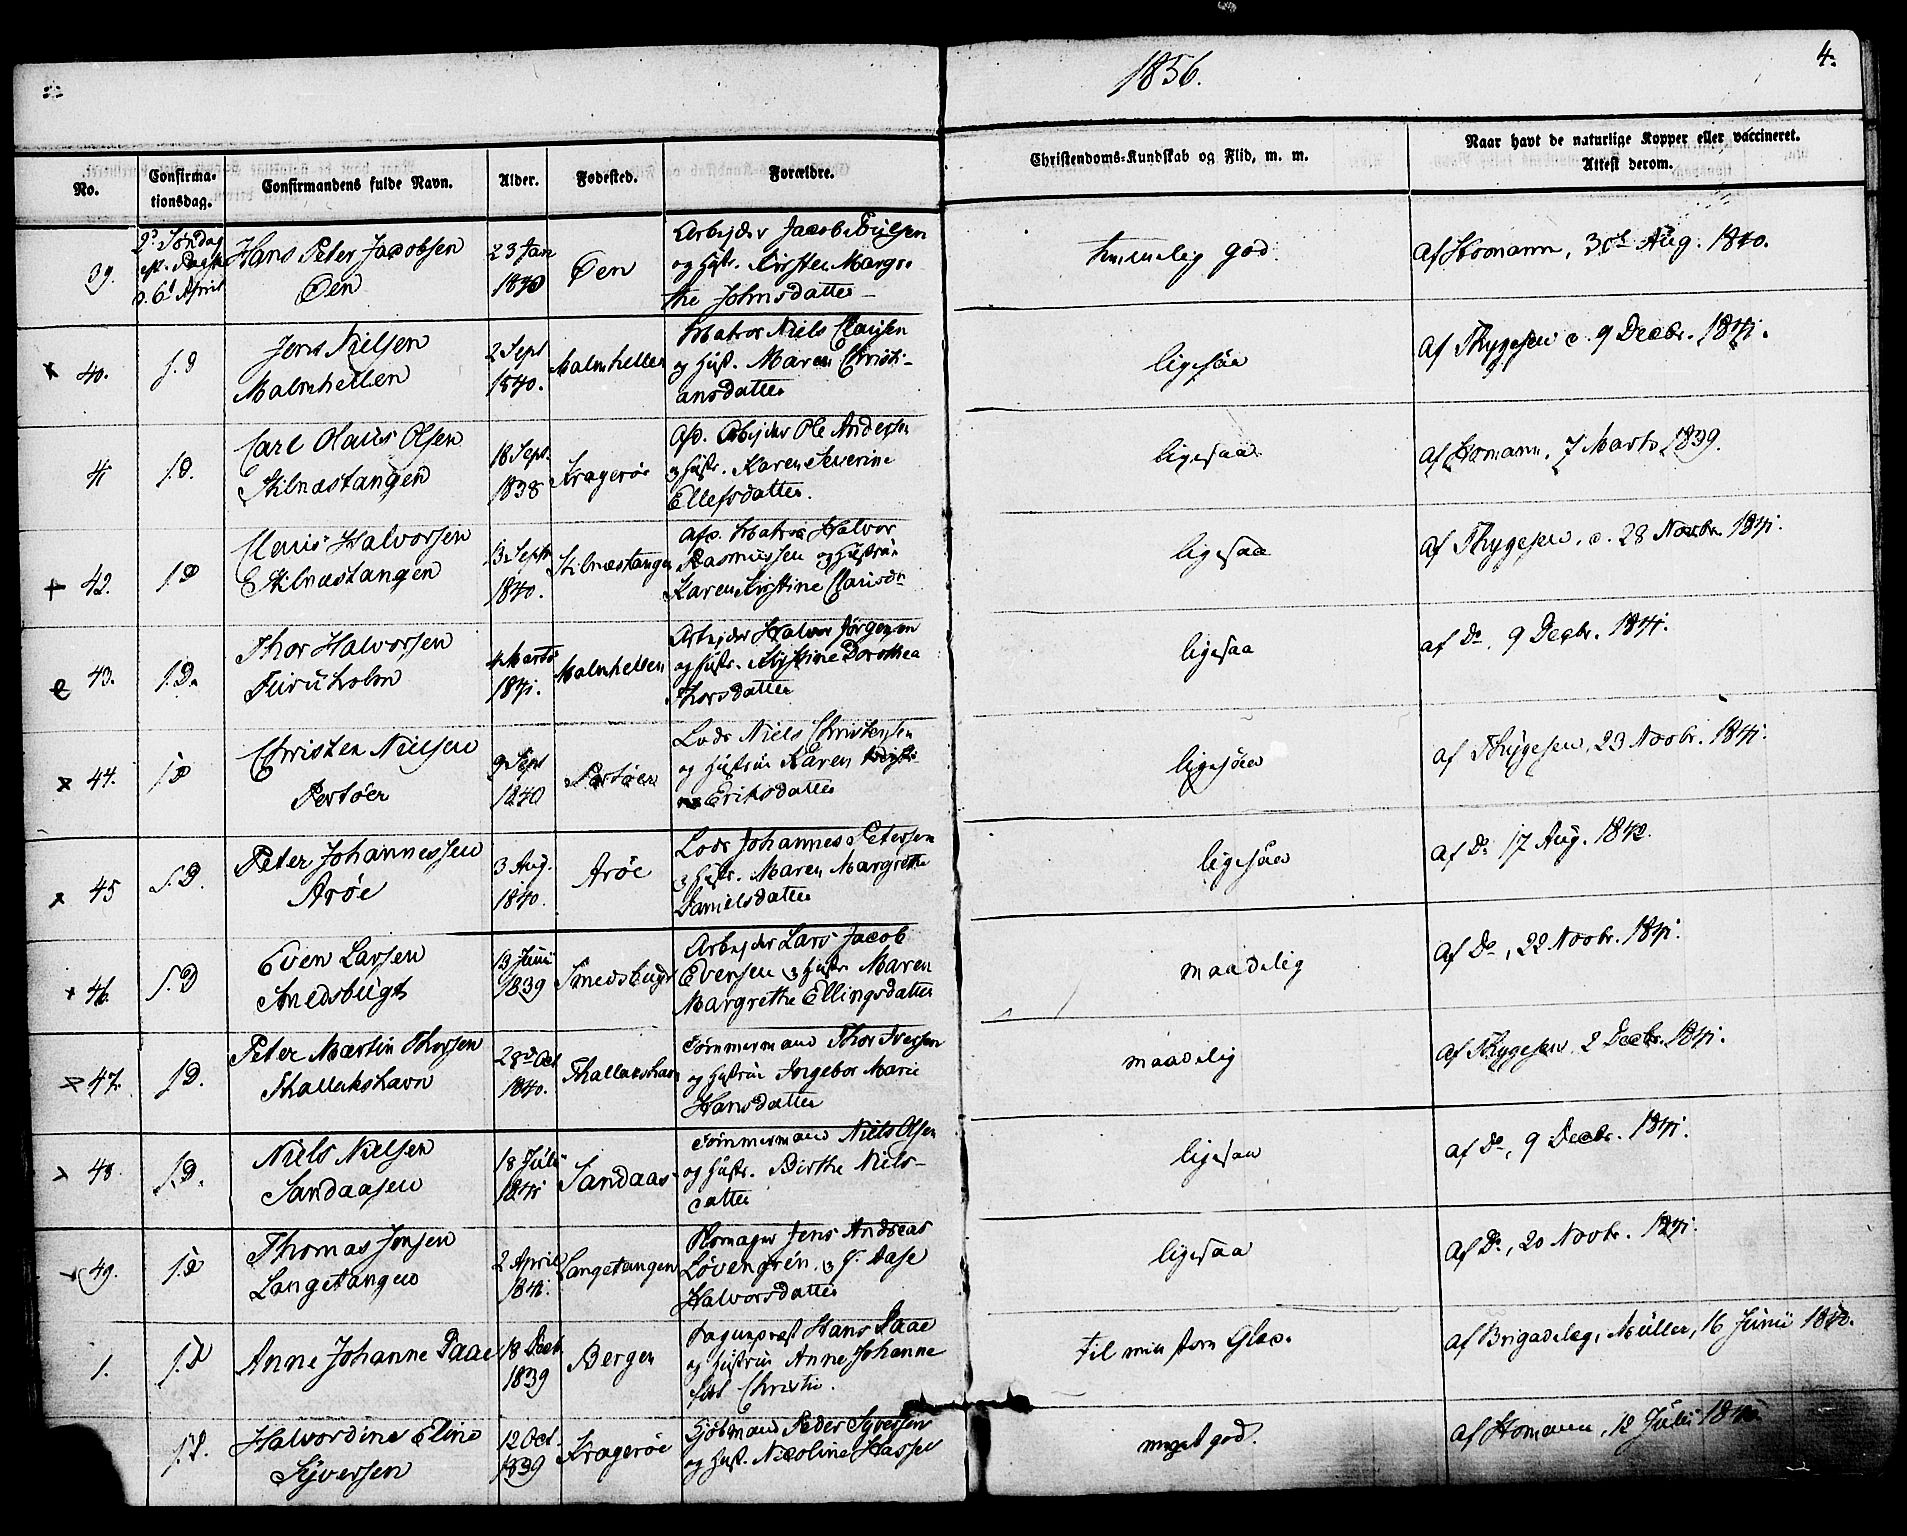 1856.
4.
No.
Confirma-
tionsdag.
Confirmandens fulde Navn.
Alder.
Fødested.
Forældre.
Christendoms-Kundskab og Flid, m. m.
Naar havt de naturlige Kopper eller vaccineret.
Attest derom.
39.
2d Søndag
eft. Paaske
d. 6t April
Hans Peter Jacobsen
Øen
23 Jan
1840
Øen
Arbejder Jacob
og Hustr. Kirsten Margre
the Johnsdatter
temmelig god.
af Homann, 30t Aug. 1840.
× 40.
S. D
Jens Nielsen
Malmhellen
2 Sept
1840.
Malmhellen
Matros Niels Clausen
og Hust. Maren Christi-
ansdatter
ligesaa
af Thygesen d. 9 Decbr. 1841.
41
S. D.
Carl Olaus Olsen
Stilnæstangen
18 Sept.
1838
Kragerøe
Afd. Arbejder Ole Andersen
og Hustr. Karen Severine
Ellefsdatter.
ligesaa
af Homann, 7 Marts 1839.
+ 42.
S. D
Claus Halvorsen
Stilnæstangen
13 Septr
1840.
Stilnæstangen
Afd. Matros Halvor
Rasmussen og Hustru
Karen Kirstine Clausdr
ligesaa
af Thygesen, d. 28 Novbr. 1841.
43.
S. D.
Thor Halvorsen
Furuholm
4 Marts
1841.
Malmhellen
Arbejder Halvor Jørgensen
og Hustr. Kirstine Dorothea
Thorsdatter
ligesaa
af Do, 9 Decbr. 1841.
× 44.
S. D
Christen Nielsen
Pertøen
9 Sept
1840
Pertøen
Lods Niels Christensen
og Hustrue Karen
Eriksdatter
ligesaa
af Thygesen, 23 Novbr. 1841.
× 45
S. D.
Peter Johannessen
Arøe
3 Aug.
1840.
Arøe
Lods Johannes Petersen
og Hustr. Maren Margrethe
Danielsdatter
ligesaa
af Do 17 Aug. 1842.
× 46.
S. D
Even Larsen
Smedsbugt
13 Juni
1839
Smedsbugt
Arbejder Lars Jacob
Evensen og Hustr Maren
Margrethe Ellingsdatter
maadelig
af Do, 22 Novbr. 1841.
× 47.
S. D.
Peter Martin Thorsen
Thallakshavn
28d Oct
1840.
Thallakshavn
Tømmermand Thor Iversen
og Hustrue Ingebor Marie
Hansdatter
maadelig
af Thygesen, 2 Decbr. 1841.
× 48.
S. D.
Niels Nielsen
Sandaasen
18 Juli
1841
Sandaas
Tømmermand Niels Olsen
og Hustr. Birthe Niels-
datter
ligesaa
af Do, 9 Decbr. 1841.
49.
S. D
Thomas Jensen
Langetangen
2 April
1841.
Langetangen
Jens Andreas
Løvengren, og H. Aase
Halvorsdatter
ligesaa
af Do, 20 Novbr. 1841.
1.
S. D
Anne Johanne Daae
18 Decb
1839
Bergen
Sognepræst Hans Daae
og Hustrue Anne Johanne
født Christie.
til min store Glæde.
af Brigadelæge Müller, 16 Junii 1840.
S. D.
Halvordine Eline
Syversen
12 Oct.
1839
Kragerøe
Kjøbmand Peder Syversen
og Hust. Nicoline Hassel
meget god.
af Homann, 12 Juli 1840.